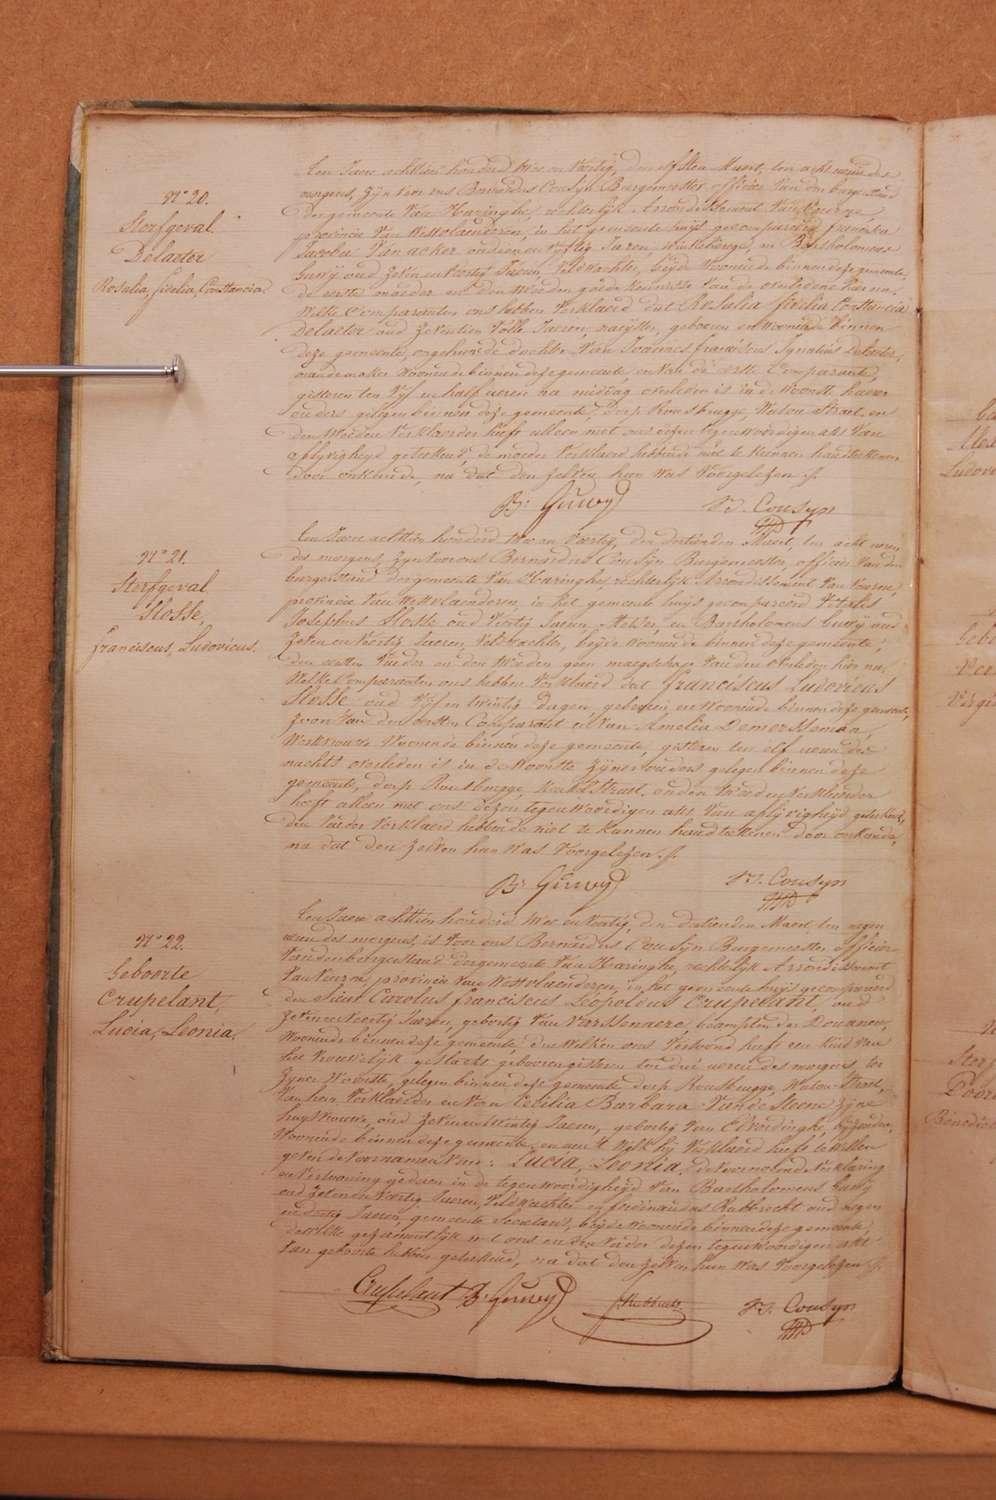 N° 20.
Sterfgeval
Delaeter
Rosalia, fidelia, Constancia
Den Jaere achttien honderd twee en Veertig, den elfsten Maert, ten acht uren des
morgens, zyn voor ons Bernardus Cousyn Burgemeester officier van den burgerstand
der gemeente van Haringhe, rechterlyk Arrondissement Van Veurne,
provincie van Westvlaenderen, in het gemeente huys gecompareerd francisca
Jacoba Van acker oud een en vyftig Jaeren, winkelierge, en Bartholomeus
Guwy oud zeven en Veertig Jaeren, Veldwachter, beyde Woonende binnen deze gemeente,
de eerste moeder en den tweeden geene kennisse van de overledene hier na.
Welke Comparanten ons hebben Verklaerd dat Rosalia fidelia Constancia
Delaeter oud zeventien Volle Jaeren, naeyster, geboren en woonende binnen
deze gemeente, ongehuwde dochter van Joannes franciscus Ignatius Delaeter,
woonende binnen deze gemeente en van de eerste Comparante,
gisteren ten vyf en half uren na middag overleden is in d'woonste haerer
ouders gelegen binnen deze gemeente, dorp Rousbrugge, Watou Straet, en
den tweeden Verklaerder heeft alleen met ons dezen tegenwoordigen akt van
aflyvigheyd geteekend, de moeder Verklaerd hebbende niet te kunnen handteekenen
door onkunde, na dat den zelven hun was Voorgelezen ./.
B: Guwy
B. Cousyn
N° 21.
Sterfgeval
Slosse,
franciscus, Ludovicus.
Den Jaere achttien honderd twee en Veertig, den dertienden Maert, ten acht uren
des morgens, zyn voor ons Bernardus Cousyn Burgemeester, officier van den
burgerstand der gemeente van Haringhe, rechterlyk Arrondissement van Veurne,
provincie van Westvlaenderen, in het gemeente huys gecompareerd Vitalis
Josephus Slosse oud Veertig Jaeren, en Bartholomeus Guwy oud
zeven en Veertig Jaeren, Veldwachter, beyde Woonende binnen deze gemeente,
den eersten Vaeder en den tweeden geen maegschap van den overleden hier na.
Welke Comparanten ons hebben Verklaerd dat franciscus Ludovicus
Slosse, oud vyf en twintig dagen, geboren en woonende binnen deze gemeente,
zoon van den eersten Comparant en van Amelia Demersseman,
Werkvrouwe Woonende binnen deze gemeente, gisteren ten elf uren des
nachts overleden is in de woonste zyner ouders gelegen binnen deze
gemeente, dorp Rousbrugge, Straet, en den tweeden Verklaerder
heeft alleen met ons dezen tegenwoordigen akt van aflyvigheyd geteekend,
den Vaeder Verklaerd hebbende niet te kunnen handteekenen door onkunde,
na dat den zelven hun was Voorgelezen ./.
B: Guwy
B. Cousyn
N° 22.
Geboorte
Crupelant,
Lucia, Leonia,
Den Jaere achttien honderd twee en Veertig, den dertienden Maert, ten negen
uren des morgens, is voor ons Bernardus Cousyn Burgemeester, officier
van den burgerstand der gemeente van Haringhe, rechterlyk Arrondissement
van Veurne, provincie van Westvlaenderen, in het gemeente huys gecompareerd
den Sieur Carolus franciscus Leopoldus Crupelant, oud
en Veertig Jaeren, geboortig van Varssenaere, beampten der Douanen,
Woonende binnen deze gemeente, den Welken ons Vertoond heeft een kind van
het Vrouwelyk geslacht, geboren gisteren ten drie uren des morgens, ter
zyner Woonste, gelegen binnen deze gemeente dorp Rousbrugge, Watou Straet,
van hem Verklaerder en van Cecilia Barbara Van de Steene zyne
huysvrouwe, oud Jaeren, geboortig van byzondere,
Woonende binnen deze gemeente, en aen 't Welk hy Verklaerd heeft te willen
geven de Voornamen van: Lucia, Leonia, de Voornoemde Verklaring
en Vertooning gedaen in de tegenwoordigheyd van Bartholomeus Guwy
oud zeven en Veertig Jaeren, Veldwachter en ferdinandus Rubbrecht oud negen
en dertig Jaeren, gemeente Secretaris, beyde Woonende binnen deze gemeente,
dewelke gezamentlyk met ons en den Vaeder dezen tegenwoordigen akt
van geboorte hebben geteekend, na dat den zelven hun was Voorgelezen ./.
Crupelant B: Guwy
f. Rubbrecht
B. Cousyn